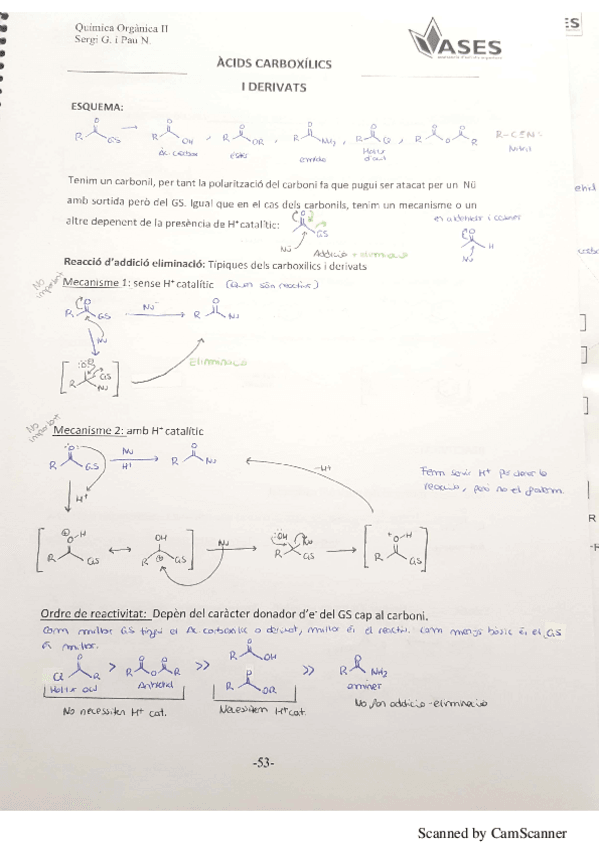 Química Orgànica II
Sergi G. i Pau N.
VASES
ES
ÀCIDS CARBOXÍLICS
I DERIVATS
ESQUEMA:
R O GS → R O OH , R O OR , R O NH2 , R O Cl , R O O O R R-C≡N:
Àc carbox èster amida Halur d'àcid Nitril
Tenim un carbonil, per tant la polarització del carboni fa que pugui ser atacat per un Nü
amb sortida però del GS. Igual que en el cas dels carbonils, tenim un mecanisme o un
altre depenent de la presència de H+ catalític:
en aldehids i cetones
O GS Nü
O H Nü
Addició + eliminació
Reacció d'addició eliminació: Típiques dels carboxílics i derivats
No important
Mecanisme 1: sense H+ catalític (Quan són reactius)
R O GS Nu- R O Nu
Nu
Eliminació
R O GS Nu
No important
Mecanisme 2: amb H+ catalític
R O GS Nu H+ R O Nu
-H+
Fem servir H+ per
reacció, però no el gastem.
H+
R O H GS ↔ R OH GS Nu R OH Nu GS → R O H GS
Ordre de reactivitat: Depèn del caràcter donador d'e- del GS cap al carboni.
Com millor GS tingui el Ac carboxílic o derivat, millor és el reactiu. Com menys bàsic és el GS
és millor.
Cl O R > R O O O R >> R O OH R O OR >> R O NH2
Halur àcid Anhídrid amines
No necessiten H+ cat. Necessiten H+ cat. No fan addició-eliminació
-53-
Scanned by CamScanner